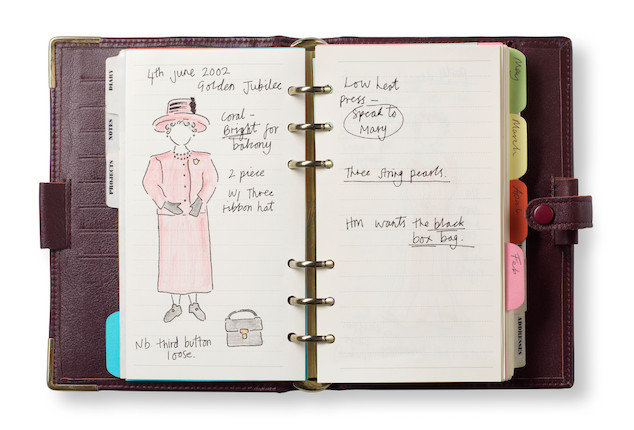 DIARY
NOTES
PROJECTS
4th June 2002
Golden Jubilee
Coral -
Bright for
balcony
2 piece
w/ Three
ribbon hat
Nb third button
loose.
Low heat
press —
speak to
Mary
Three string pearls.
HM wants the black
box bag.
May
March
Feb
ADDRESSES